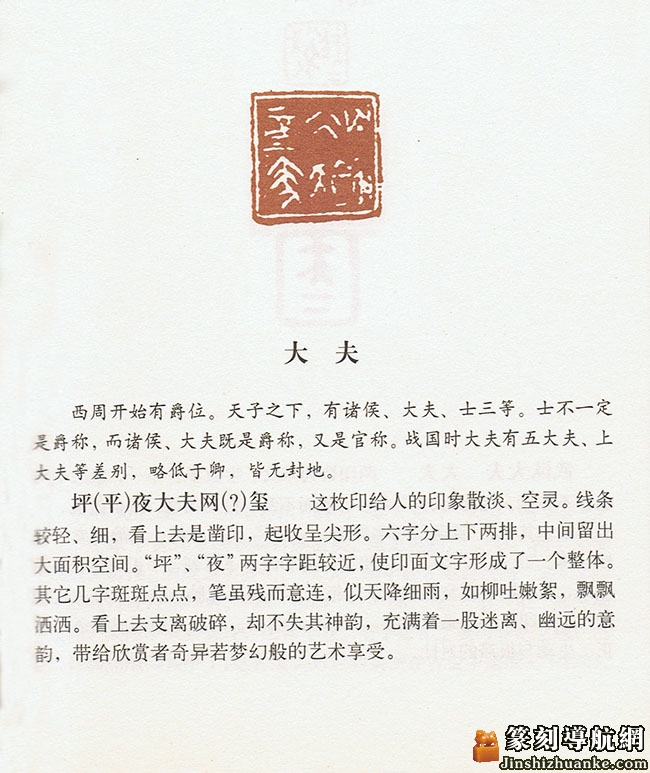 大 夫
西周开始有爵位。天子之下，有诸侯、大夫、士三等。士不一定
是爵称，而诸侯、大夫既是爵称，又是官称。战国时大夫有五大夫、上
大夫等差别，略低于卿，皆无封地。
坪(平)夜大夫网(?)玺　　这枚印给人的印象散淡、空灵。线条
较轻、细，看上去是凿印，起收呈尖形。六字分上下两排，中间留出
大面积空间。“坪”、“夜”两字字距较近，使印面文字形成了一个整体。
其它几字斑斑点点，笔虽残而意连，似天降细雨，如柳吐嫩絮，飘飘
洒洒。看上去支离破碎，却不失其神韵，充满着一股迷离、幽远的意
韵，带给欣赏者奇异若梦幻般的艺术享受。
篆刻導航網
Jinshizhuanke.com